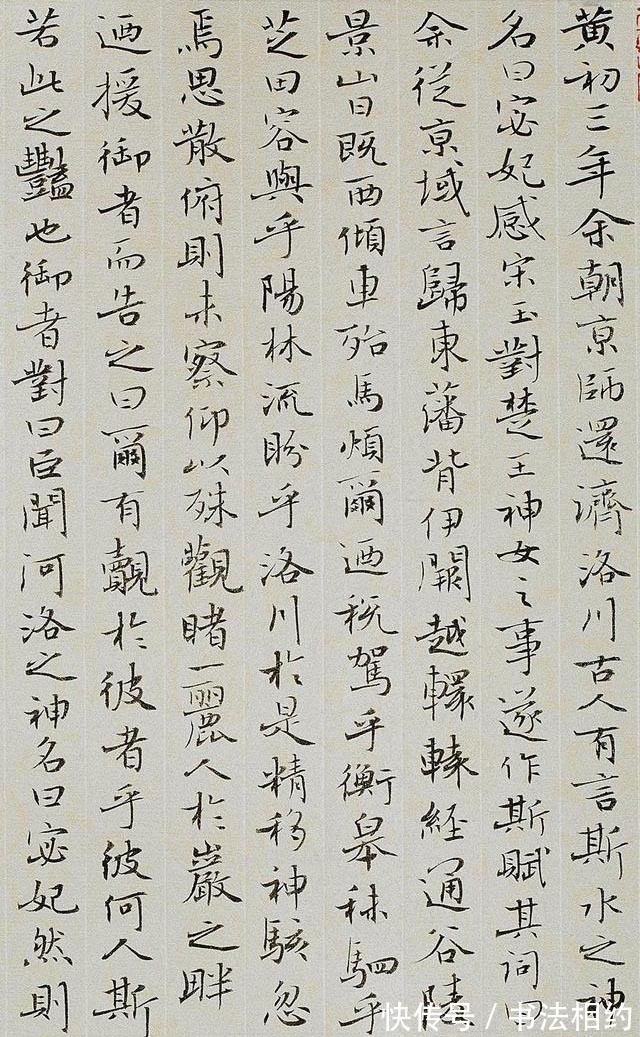 黄初三年余朝京師還濟洛川古人有言斯水之神
名曰宓妃感宋玉對楚王神女之事遂作斯賦其詞曰
余從京域言歸東藩背伊闕越轘轅經通谷陵
景山日既西傾車殆馬煩爾迺税駕乎衡皋秣駟乎
芝田容與乎陽林流盼乎洛川於是精移神駭忽
焉思散俯則未察仰以殊觀睹一麗人於巖之畔
迺援御者而告之曰爾有覿於彼者乎彼何人斯
若此之豔也御者對曰臣聞河洛之神名曰宓妃然則
快传号/书法相约